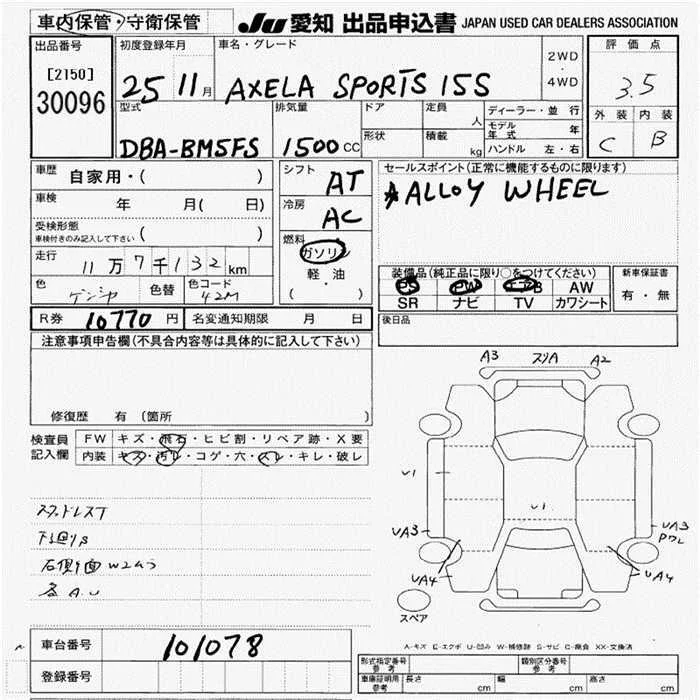 車内保管・守衛保管 JU 愛知 出品申込書 JAPAN USED CAR DEALERS ASSOCIATION
出品番号 初度登録年月 車名・グレード 2WD・4WD 評価点
[2150]
30096 25 11月 AXELA SPORTS 15S 3.5
型式 排気量 ドア 定員 人 ディーラー・並行 外装 内装
モデル年式 年
DBA-BM5FS 1500cc 形状 積載 kg ハンドル 左・右 C B
車歴 自家用・( ) シフト AT セールスポイント(正常に機能するものに限ります)
ALLOY WHEEL
車検 年 月( 日) 冷房 AC
受検形態
車検付きのみ記入して下さい ( ) 燃料 ガソリン
走行 11万7千132km 軽・油 装備品(純正品に限り○をつけてください) 新車保証書
( ・ ) PS PW エアB AW 有・無
色 色替 色コード 42M SR ナビ TV カワシート
R券 10770円 名変通知期限 月 日 後日品
注意事項申告欄(不具合内容等は具体的に記入して下さい)
A3 スリA A2
修復歴 有 (箇所 )
検査員 FW キズ・飛石・ヒビ割・リペア跡・X要
記入欄 内装 キズ・汚レ・コゲ・穴・スレ・キレ・破レ
U1
U1
下廻りS
右側面W2ムラ
各A.U
UA3 UA3
PWし
UA4 UA4
スペア
車台番号 101078 A-キズ E-エクボ U-凹み W-補修跡 S-サビ C-腐食 XX-交換済
登録番号 形式指定番号 参考 類別区分番号 参考
車庫証明用 参考 長さ cm 幅 cm 高さ cm